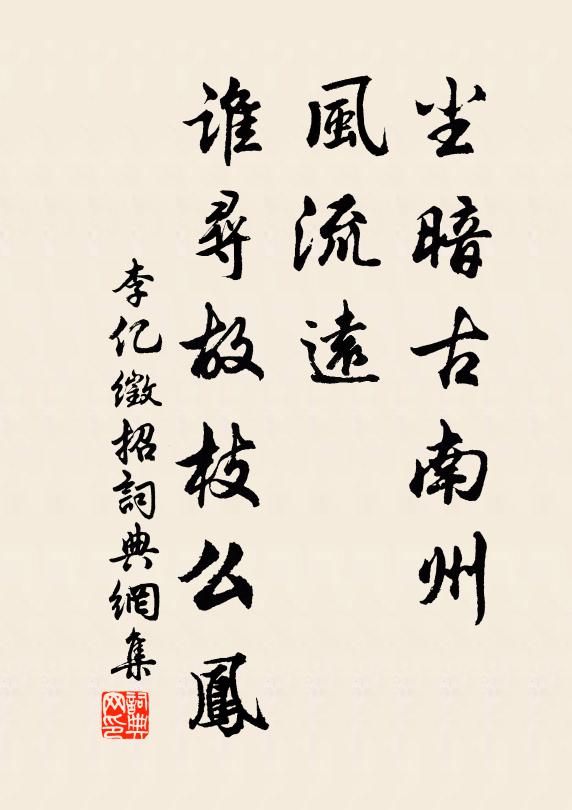 尘暗古南州
風流遠
誰尋故枝么鳳
李亿徵招詞典網集
詞典网印